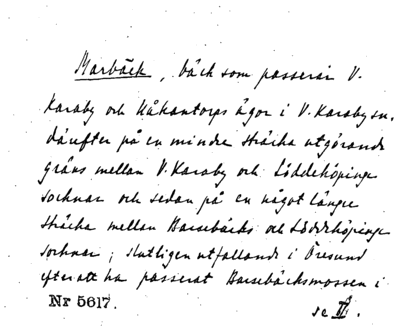 Marbäck, bäck som passerar V.
Karaby och Håkantorps ägor i V. Karaby sn.
därefter på en mindre sträcka utgörande
gräns mellan V. Karaby och Löddeköpinge
socknar och sedan på en något längre
sträcka mellan Barsebäcks och Löddeköpinge
socknar; slutligen utfallande i Öresund
efter att ha passerat Barsebäcksmossen i
Nr 5617.
se II.